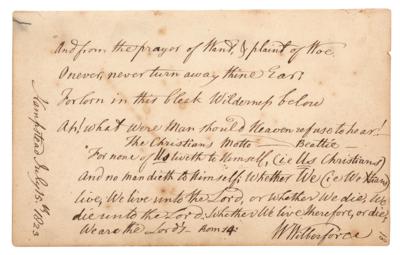 And from the prayer of Want, & plaint of Woe
O never, never turn away thine Ear!
Forlorn in this bleak Wilderness below
Ah! what were Man should Heaven refuse to hear!
The Christians Motto — Beattie —
"For none of Us liveth to himself, (ie Us Christians)
And no man dieth to himself; Whether We (ie We
live, We live unto the Lord, or Whether We die, We
die unto the Lord. Whether We live therefore, or die,
We are the Lord's Rom 14.
W Wilberforce
Hampstead July 15th 1823